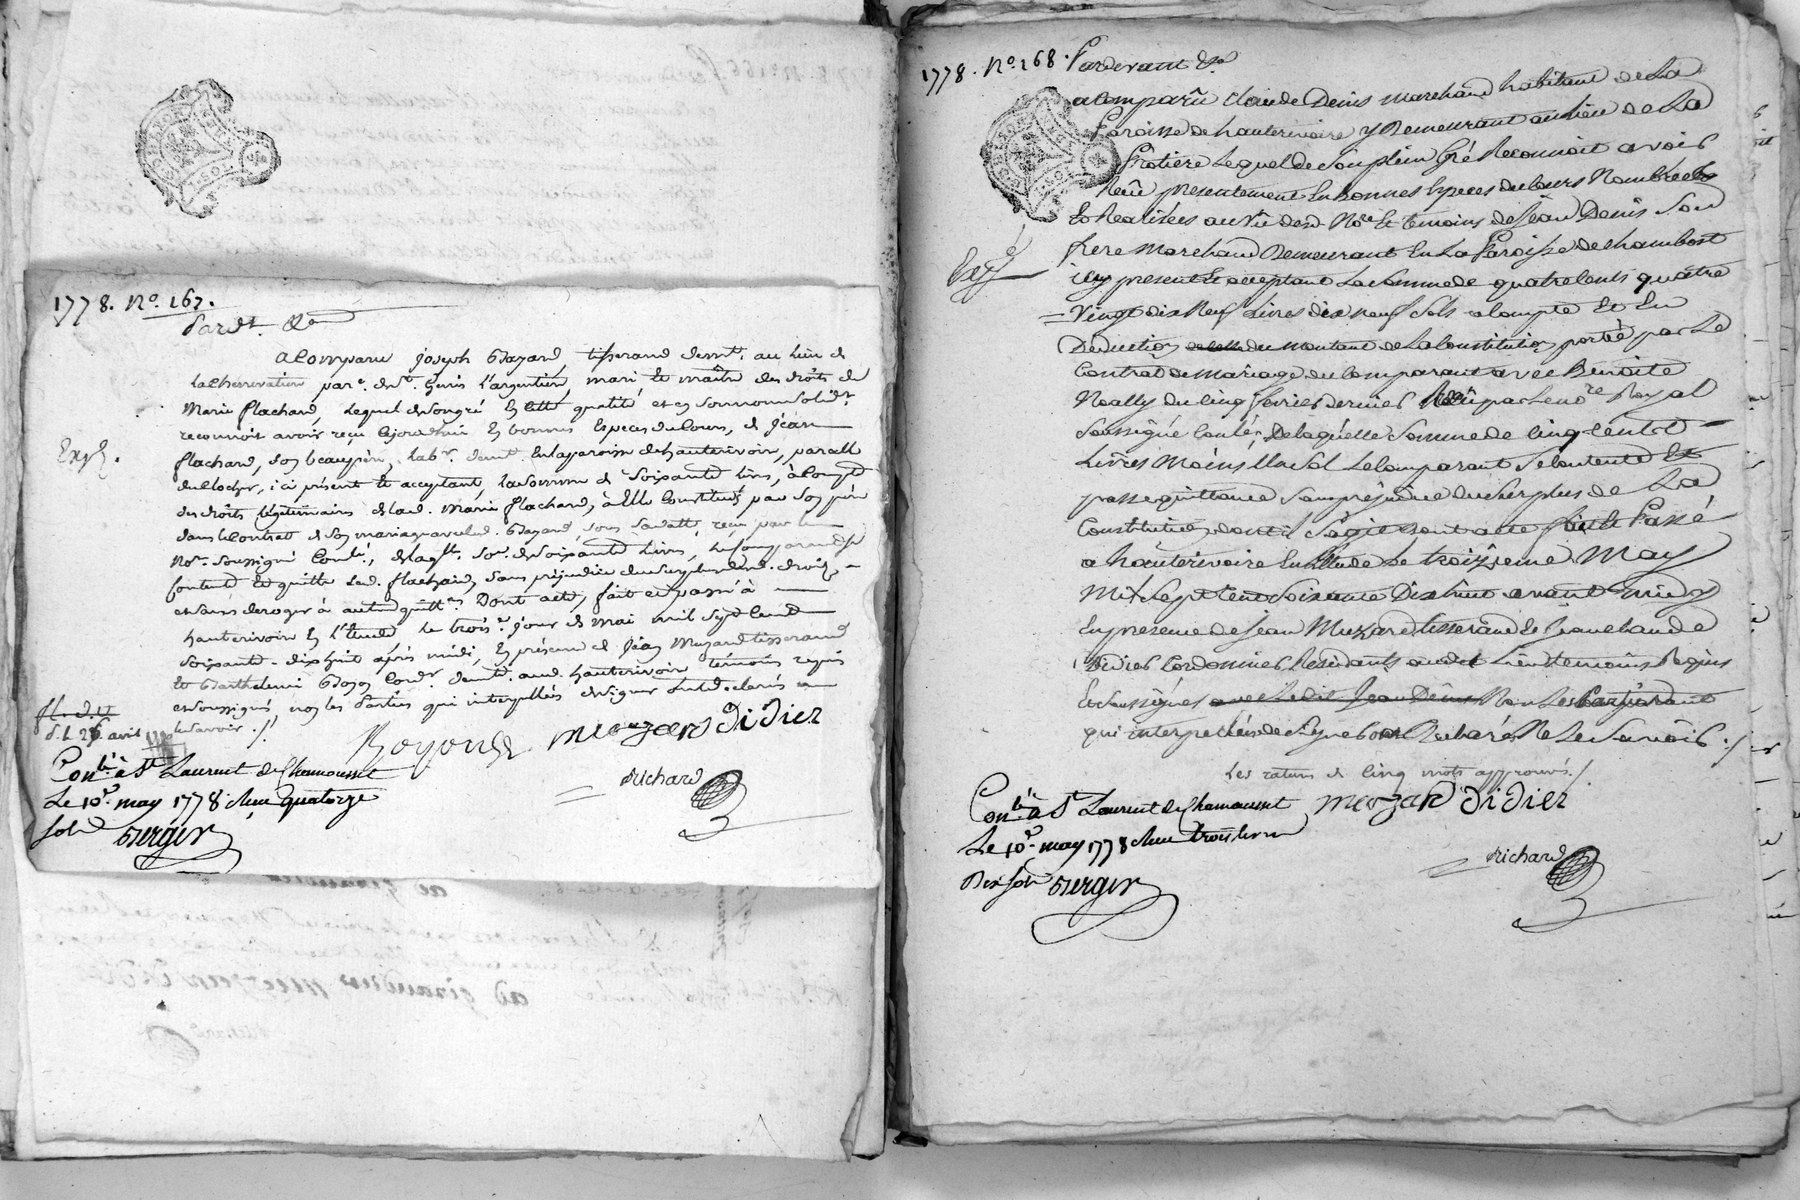 1778. No. 167.
Pardt. &a
a Comparu joseph Bayard, tisserand demt. au lieu de
parr. de St. Genis L'argentiere, mari Et maître des droits de
Marie flachard, Lequel de son gré En cette qualité et en son nom solidt.
reconnoit avoir reçu En bonnes Especes du Cours, de jean
flachard, son beaupere, labr. demt. En la paroisse de hauterivoire, 
du Clocher, ici présent Et acceptant, la somme de soixante livres, à compte
des droits légitimaires de lad. Marie flachard, à Elle Constitués par son pere
dans le Contrat de son mariage avec led. Bayard, reçu par le
Nore. soussigné Conlé., de laqlle. soe. de soixante livres, le comparant se
contente Et quitte led. flachard, sans préjudice du surplus desd. droits
et sans deroger à autres quittes. Dont acte, fait et passé à
hauterivoire En l'Etude le trois. jour de mai mil sept cent
soixante-dix huit après midi, En présence de jean Muzard tisserand
Et Barthelemi Boyon Cordr. demts. aud. hauterivoire témoins requis
et soussignés non les Parties qui interpellées de signer ont declaré ne
le savoir ./.
Exp.
avril
Boyon muzard didier
Conlé. à St. Laurent de Chamousset
Le 10e. may 1778 Reçu quatorze
sols Berger
Richard
1778. No. 168. Pardevant &a
a Comparû Claude Denis marchand habitant de La
Paroisse de hauterivoire y Demeurant au lieu de La
Gratiere Lequel de Son plein Gré Reconnoit avoir
Reçû présentement En bonnes Especes du Cours Nombrées
Et Realisées au Vû desd. Nore Et temoins de jean Denis Son
frere Marchand Demeurant En La Paroisse de Chambost
icy present Et acceptant La somme de quatre Cents quatre
Vingt dix Neuf Livres dix neuf Sols a Compte Et En
Deduction du montant de La Constitution portée par Le
Contrat de Mariage du Comparant avec Benoite
Noally du Cinq fevrier dernier Reçû par Le nore Royal
Soussigné Conlé, De laquelle Somme de Cinq Cent
Livres Moins Un Sol Le Comparant Se Contente Et
passe quittance Sans prejudice du Surplus de La
Constitution dont il S'agit dont acte fait Et Passé
a hauterivoire En l'Etude Le troizieme May
Mil Sept Cent Soixante Dix huit avant midy
En presence de jean Muzard tisserand Et jean claude
Didier Cordonnier Residants audit Lieu temoins Requis
Et Soussignés avec Ledit Jean Denis Non Le Comparant
qui interpellé de Signer a Declaré Ne Le Savoir ./.
Exp. é
Les ratures de Cinq mots approuvés ./.
Conlé. à St. Laurent de Chamousset
muzard didier
Le 10e. may 1778 Reçu trois livres
Dix sols Berger
Richard